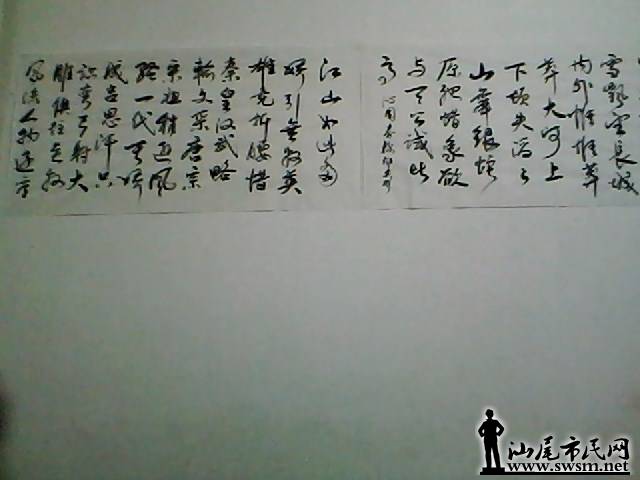 雪飘望长城
内外惟惟莽
莽大河上
下顿失滔滔
山舞银蛇
原驰蜡象欲
与天公试比
高
江山如此多
娇引无数英
雄竞折腰惜
秦皇汉武略
输文采唐宗
宋祖稍逊风
骚一代天骄
成吉思汗只
识弯弓射大
雕俱往矣数
风流人物还
汕尾市民网
www.swsm.net